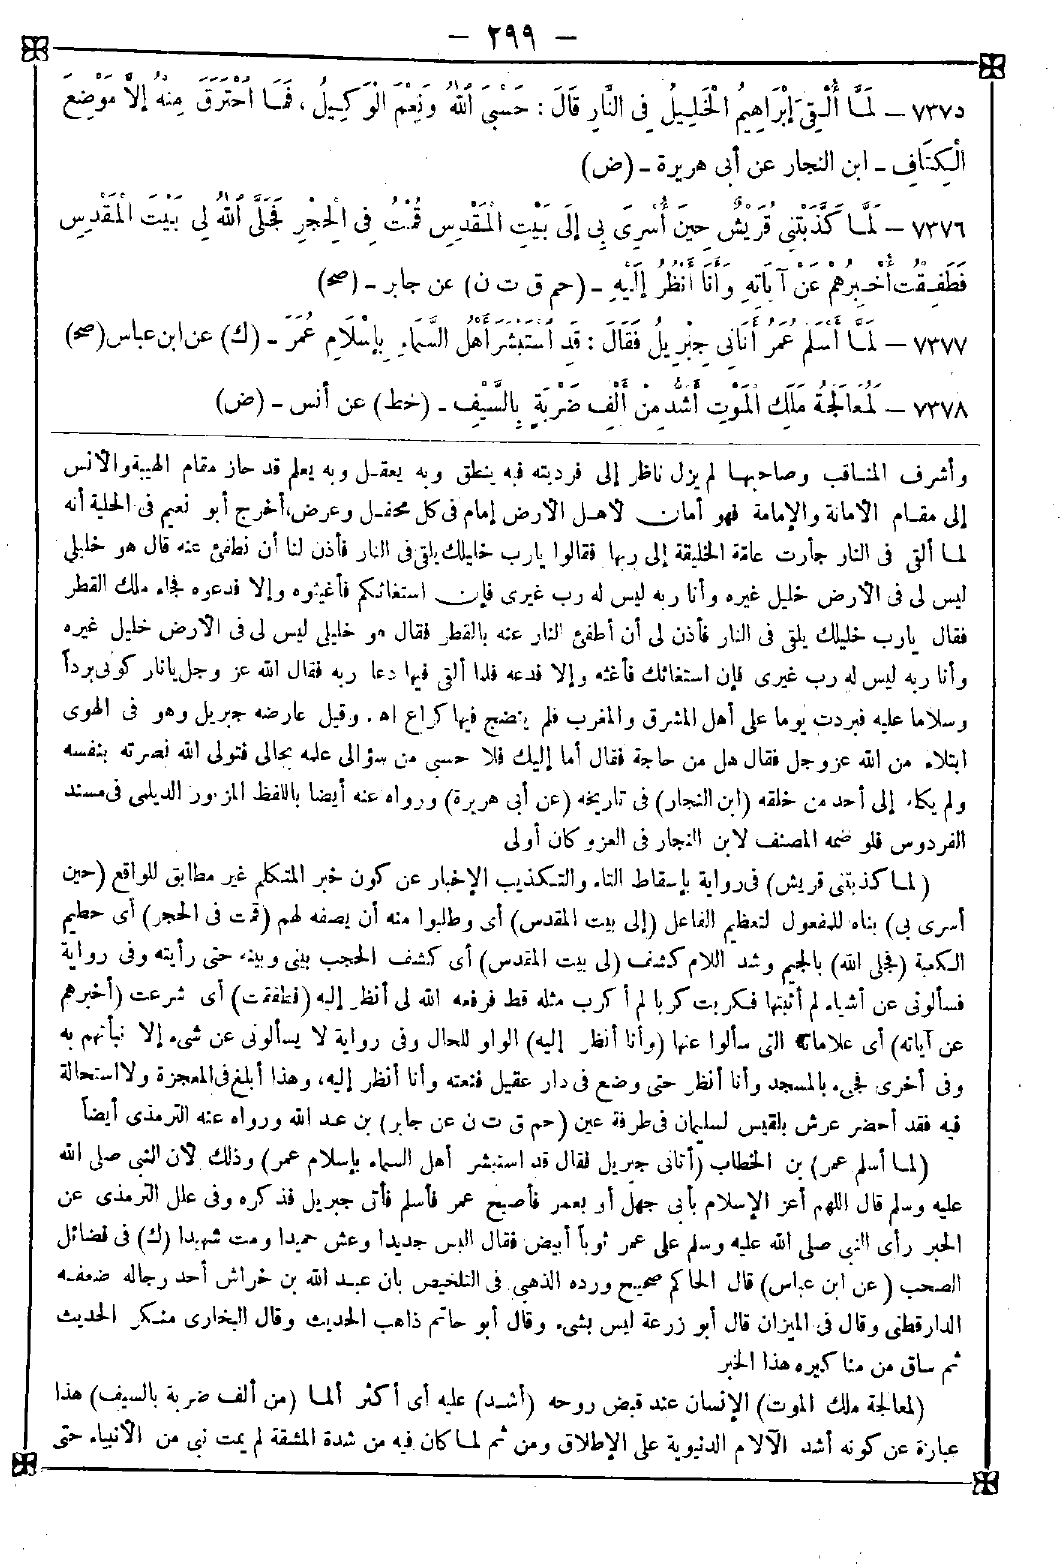 - ٢٩٩ -
٧٣٧٥ - لَمَّا أُلْقِيَ إِبْرَاهِيمُ الْخَلِيلُ فِى النَّارِ قَالَ : حَسْبِىَ اللهُ وَنِعْمَ الْوَكِيلُ ، فَمَا احْتَرَقَ مِنْهُ إِلَّا مَوْضِعُ
الْكِتَافِ - ابن النجار عن أبى هريرة - (ض)
٧٣٧٦ - لَمَّا كَذَّبَتْنِى قُرَيْشٌ حِينَ أُسْرِىَ بِى إِلَى بَيْتِ الْمَقْدِسِ قُمْتُ فِى الْحِجْرِ فَجَلَّى اللهُ لِى بَيْتَ الْمَقْدِسِ
فَطَفِقْتُ أُخْبِرُهُمْ عَنْ آيَاتِهِ وَأَنَا أَنْظُرُ إِلَيْهِ - (حم ق ت ن) عن جابر - (صح)
٧٣٧٧ - لَمَّا أَسْلَمَ عُمَرُ أَتَانِى جِبْرِيلُ فَقَالَ : قَدِ اسْتَبْشَرَ أَهْلُ السَّمَاءِ بِإِسْلَامِ عُمَرَ - (ك) عن ابن عباس (صح)
٧٣٧٨ - لَمُعَالَجَةُ مَلَكِ الْمَوْتِ أَشَدُّ مِنْ أَلْفِ ضَرْبَةٍ بِالسَّيْفِ - (خط) عن أنس - (ض)
وأشرف المناقب وصاحبها لم يزل ناظر إلى فرديته فبه ينطق وبه يعقل وبه يعلم قد حاز مقام الهيبة والأنس
إلى مقام الأمانة والإمامة فهو أمان لأهل الأرض إمام فى كل محفل وعرض، أخرج أبو نعيم فى الحلية أنه
لما ألقى فى النار جأرت عامة الخليقة إلى ربها فقالوا يارب خليلك يلقى فى النار فأذن لنا أن نطفئ عنه قال هو خليلى
ليس لى فى الأرض خليل غيره وأنا ربه ليس له رب غيرى فإن استغاثكم فأغيثوه وإلا فدعوه فجاء ملك القطر
فقال يارب خليلك يلقى فى النار فأذن لى أن أطفئ النار عنه بالقطر فقال هو خليلى ليس لى فى الأرض خليل غيره
وأنا ربه ليس له رب غيرى فإن استغاثك فأغثه وإلا فدعه فلما ألقى فيها دعا ربه فقال الله عز وجل يانار كونى برداً
وسلاما عليه فبردت يوما على أهل المشرق والمغرب فلم ينضج فيها كراع اه. وقيل عارضه جبريل وهو فى الهوى
ابتلاء من الله عزوجل فقال هل من حاجة فقال أما إليك فلا حسبى من سؤالى علمه بحالى فتولى الله نصرته بنفسه
ولم يكله إلى أحد من خلقه (ابن النجار) فى تاريخه (عن أبى هريرة) ورواه عنه أيضا باللفظ المزبور الديلمى فى مسند
الفردوس فلو ضمه المصنف لابن النجار فى العزو كان أولى
(لما كذبتنى قريش) فى رواية بإسقاط التاء والتكذيب الإخبار عن كون خبر المتكلم غير مطابق للواقع (حين
أسرى بى) بناه للمفعول لتعظيم الفاعل (إلى بيت المقدس) أى وطلبوا منه أن يصفه لهم (قمت فى الحجر) أى حطيم
الكعبة (فجلى الله) بالجيم وشد اللام كشف (لى بيت المقدس) أى كشف الحجب بينى وبينه حتى رأيته وفى رواية
فسألونى عن أشياء لم أثبتها فكربت كربا لم أكرب مثله قط فرفعه الله لى أنظر إليه (فطفقت) أى شرعت (أخبرهم
عن آياته) أى علاماته التى سألوا عنها (وأنا أنظر إليه) الواو للحال وفى رواية لا يسألونى عن شىء إلا نبأتهم به
وفى أخرى فجىء بالمسجد وأنا أنظر حتى وضع فى دار عقيل فنعته وأنا أنظر إليه، وهذا أبلغ فى المعجزة ولااستحالة
فيه فقد أحضر عرش بلقيس لسليمان فى طرفة عين (حم ق ت ن عن جابر) بن عبد الله ورواه عنه الترمذى أيضاً
(لما أسلم عمر) بن الخطاب (أتانى جبريل فقال قد استبشر أهل السماء بإسلام عمر) وذلك لأن النبى صلى الله
عليه وسلم قال اللهم أعز الإسلام بأبى جهل أو بعمر فأصبح عمر فأسلم فأتى جبريل فذكره وفى علل الترمذى عن
الحبر رأى النبى صلى الله عليه وسلم على عمر ثوباً أبيض فقال البس جديدا وعش حميدا ومت شهيدا (ك) فى فضائل
الصحب (عن ابن عباس) قال الحاكم صحيح ورده الذهبى فى التلخيص بان عبد الله بن خراش أحد رجاله ضعفه
الدارقطنى وقال فى الميزان قال أبو زرعة ليس بشىء وقال أبو حاتم ذاهب الحديث وقال البخارى منكر الحديث
ثم ساق من مناكيره هذا الخبر
(لمعالجة ملك الموت) الإنسان عند قبض روحه (أشد) عليه أى أكثر ألما (من ألف ضربة بالسيف) هذا
عبارة عن كونه أشد الآلام الدنيوية على الإطلاق ومن ثم لما كان فيه من شدة المشقة لم يمت نبى من الأنبياء حتى